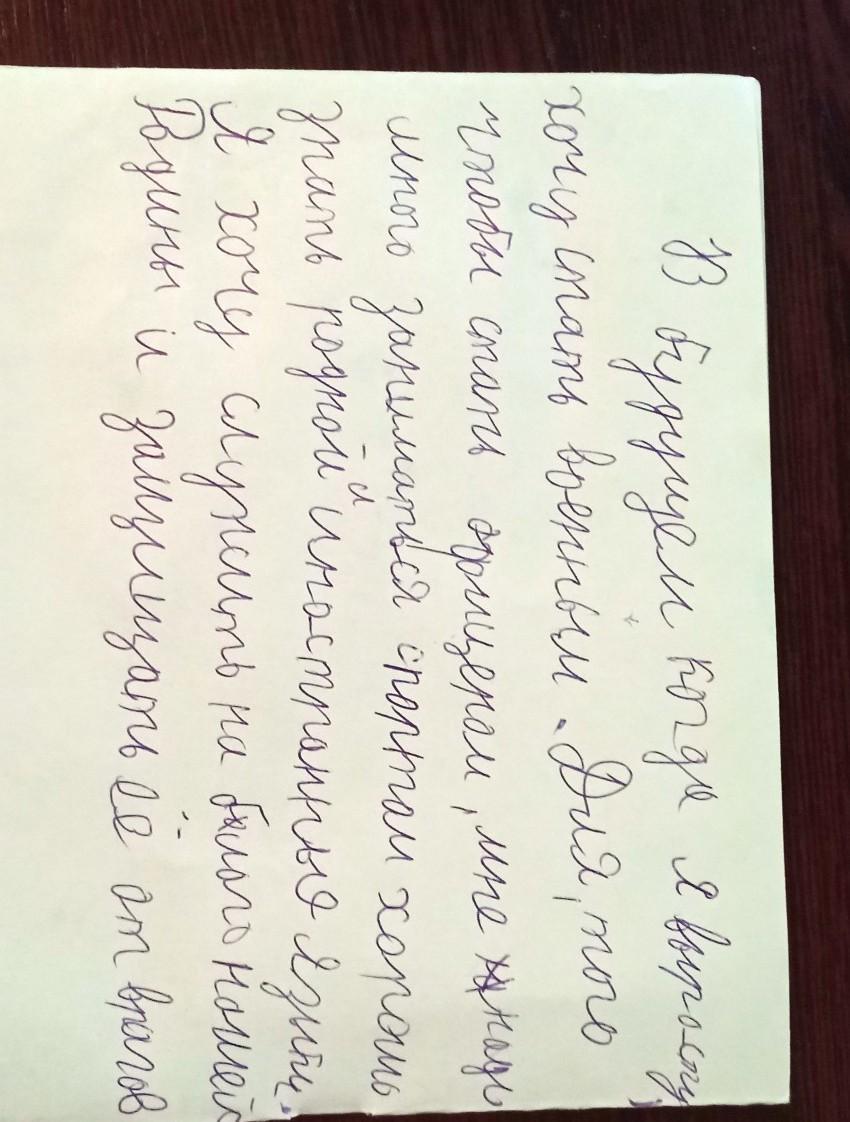 В будущем когда я вырасту,
хочу стать военным. Для, того
чтобы стать офицером, мне надо
много заниматься спортом хорошо
знать родной и иностранные языки.
Я хочу служить на благо нашей
Родины и защищать её от врагов